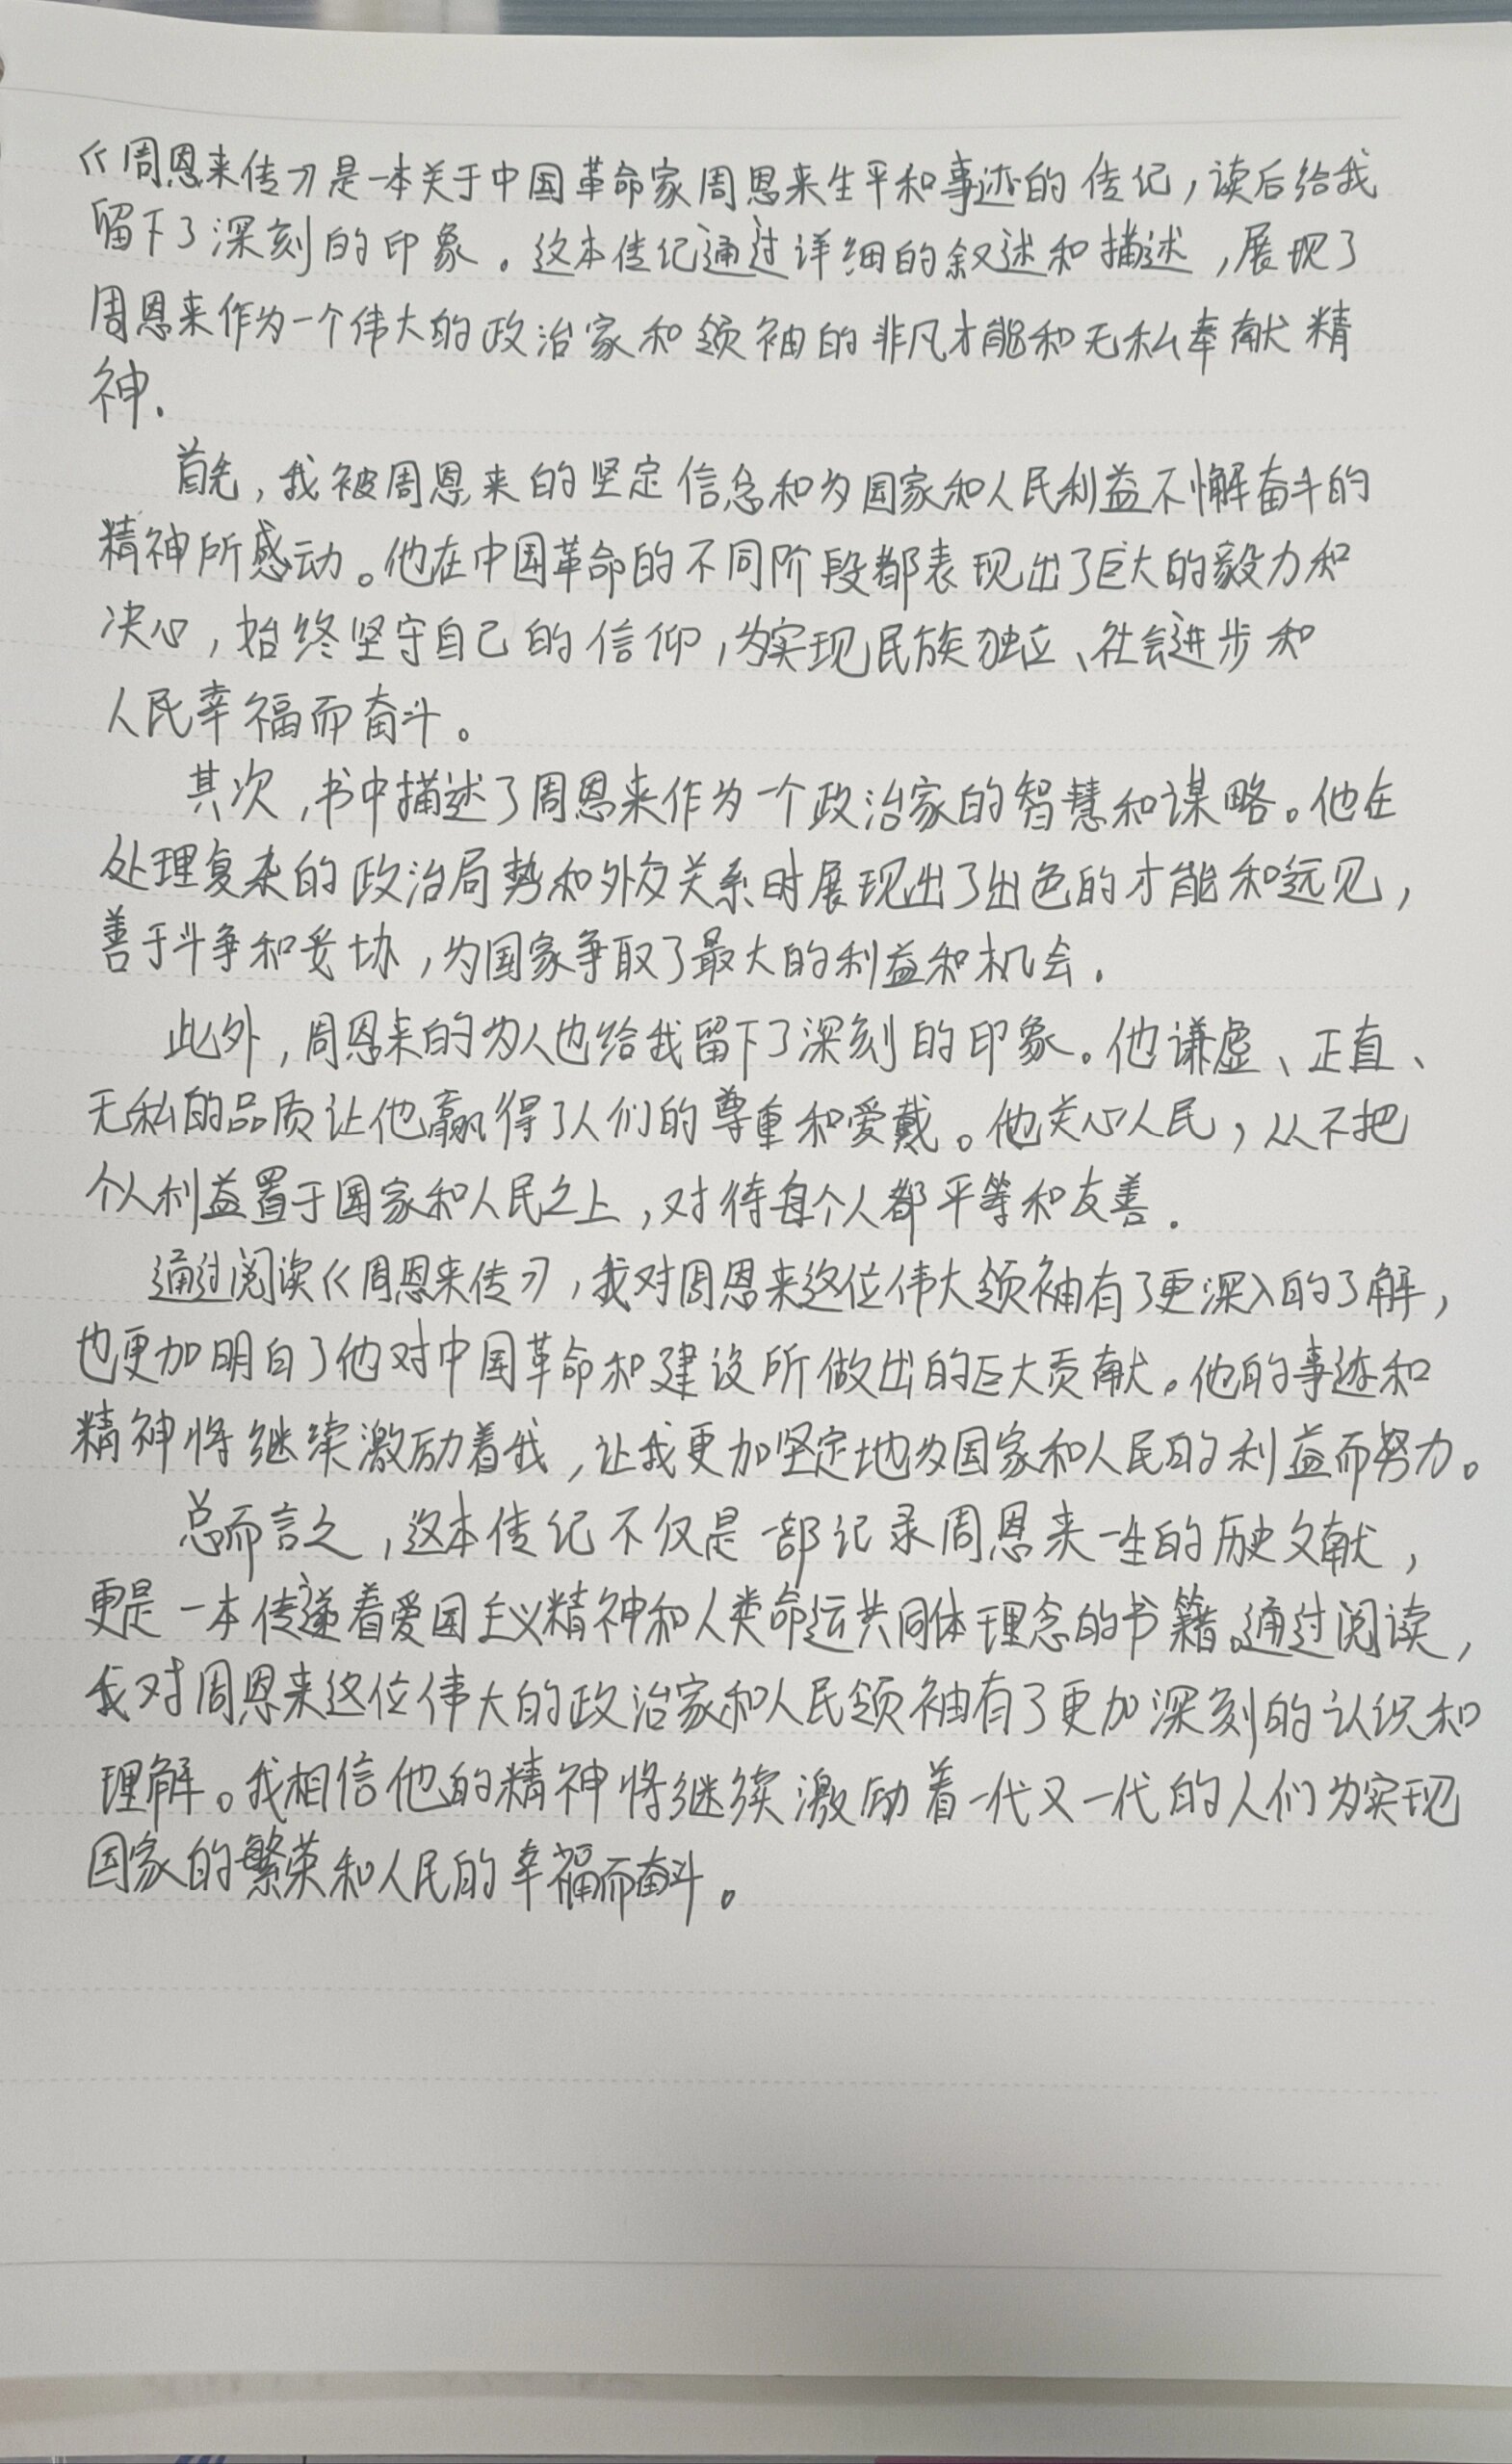 《周恩来传》是一本关于中国革命家周恩来生平和事迹的传记，读后给我
留下了深刻的印象。这本传记通过详细的叙述和描述，展现了
周恩来作为一个伟大的政治家和领袖的非凡才能和无私奉献精
神.
首先，我被周恩来的坚定信念和为国家和人民利益不懈奋斗的
精神所感动。他在中国革命的不同阶段都表现出了巨大的毅力和
决心，始终坚守自己的信仰，为实现民族独立、社会进步和
人民幸福而奋斗。
其次，书中描述了周恩来作为一个政治家的智慧和谋略。他在
处理复杂的政治局势和外交关系时展现出了出色的才能和远见，
善于斗争和妥协，为国家争取了最大的利益和机会.
此外，周恩来的为人也给我留下了深刻的印象。他谦虚、正直、
无私的品质让他赢得了人们的尊重和爱戴。他关心人民，从不把
个人利益置于国家和人民之上，对待每个人都平等和友善.
通过阅读《周恩来传》，我对周恩来这位伟大领袖有了更深入的了解，
也更加明白了他对中国革命和建设所做出的巨大贡献。他的事迹和
精神将继续激励着我，让我更加坚定地为国家和人民的利益而努力。
总而言之，这本传记不仅是一部记录周恩来一生的历史文献，
更是一本传递着爱国主义精神和人类命运共同体理念的书籍。通过阅读，
我对周恩来这位伟大的政治家和人民领袖有了更加深刻的认识和
理解。我相信他的精神将继续激励着一代又一代的人们为实现
国家的繁荣和人民的幸福而奋斗。